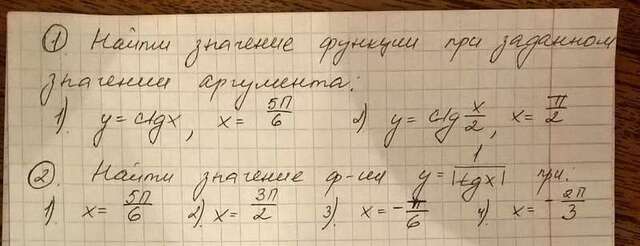 ① Найти значение функции при заданном
значении аргумента:
1). y = ctgx, x = 5π/6 2) y = ctg x/2, x = π/2
② Найти значение ф-ии y = 1/|tgx| при:
1). x = 5π/6 2). x = 3π/2 3). x = -π/6 4). x = -2π/3